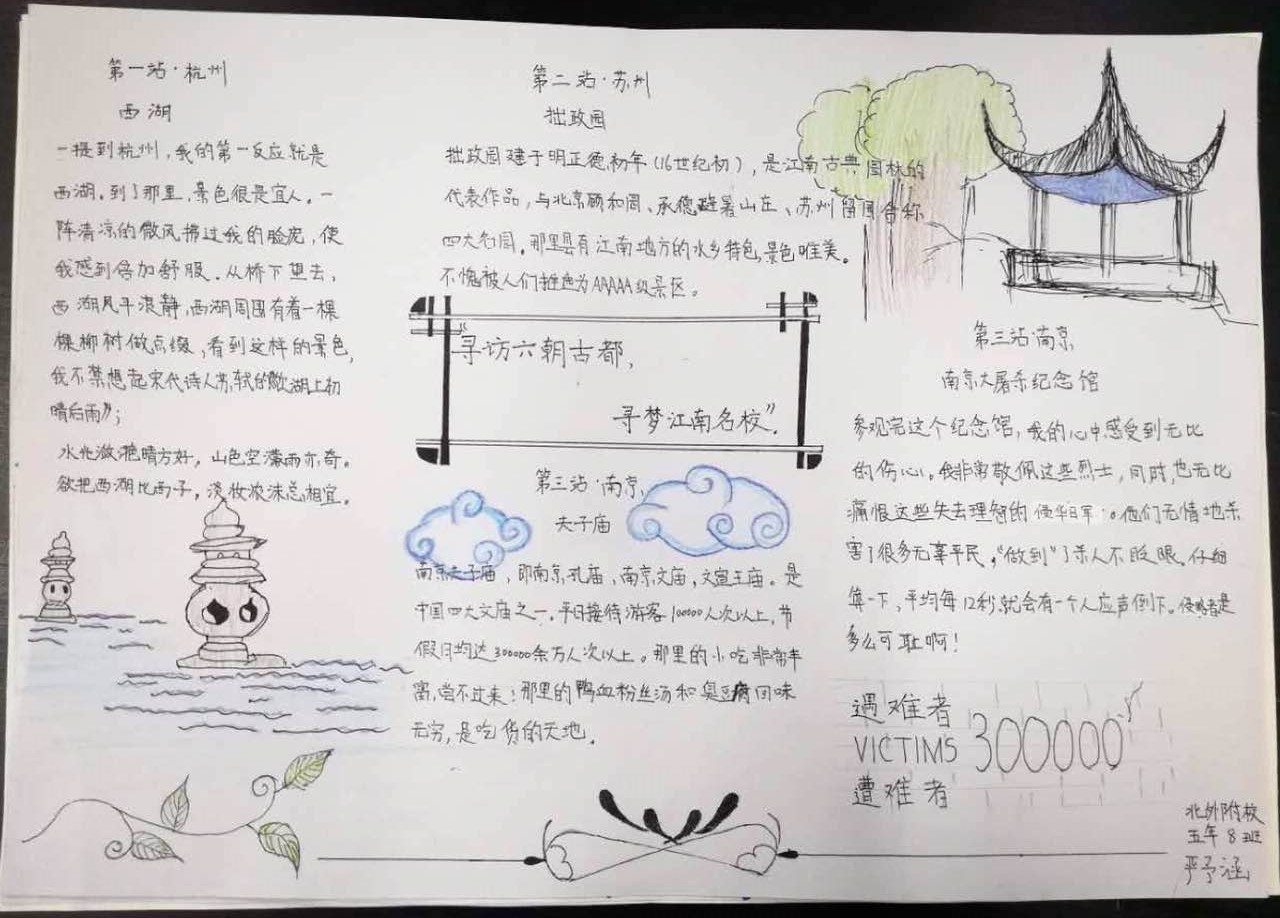 第一站·杭州
西湖
一提到杭州，我的第一反应就是
西湖。到了那里，景色很是宜人。一
阵清凉的微风拂过我的脸庞，使
我感到倍加舒服。从桥下望去，
西湖风平浪静，西湖周围有着一棵
棵柳树做点缀，看到这样的景色，
我不禁想起宋代诗人苏轼的《饮湖上初
晴后雨》；
水光潋滟晴方好，山色空濛雨亦奇。
欲把西湖比西子，淡妆浓沫总相宜。
第二站·苏州
拙政园
拙政园建于明正德初年（16世纪初），是江南古典园林的
代表作品，与北京颐和园、承德避暑山庄、苏州留园合称
四大名园。那里具有江南地方的水乡特色，景色唯美。
不愧被人们推选为AAAAA级景区。
“寻访六朝古都，
寻梦江南名校”。
第三站·南京
夫子庙
南京夫子庙，即南京孔庙、南京文庙，文宣王庙。是
中国四大文庙之一。平日接待游客10000人次以上，节
假日均达300000余万人次以上。那里的小吃非常丰
富，尝不过来！那里的鸭血粉丝汤和臭豆腐回味
无穷，是吃货的天地。
第三站·南京
南京大屠杀纪念馆
参观完这个纪念馆，我的心中感受到无比
的伤心。我非常敬佩这些烈士，同时，也无比
痛恨这些失去理智的侵华日军。他们无情地杀
害了很多无辜平民，“做到”了杀人不眨眼。仔细
算一下，平均每12秒就会有一个人应声倒下。侵略者是
多么可耻啊！
遇难者
VICTIMS 300000
遭难者
北外附校
五年8班
严予涵